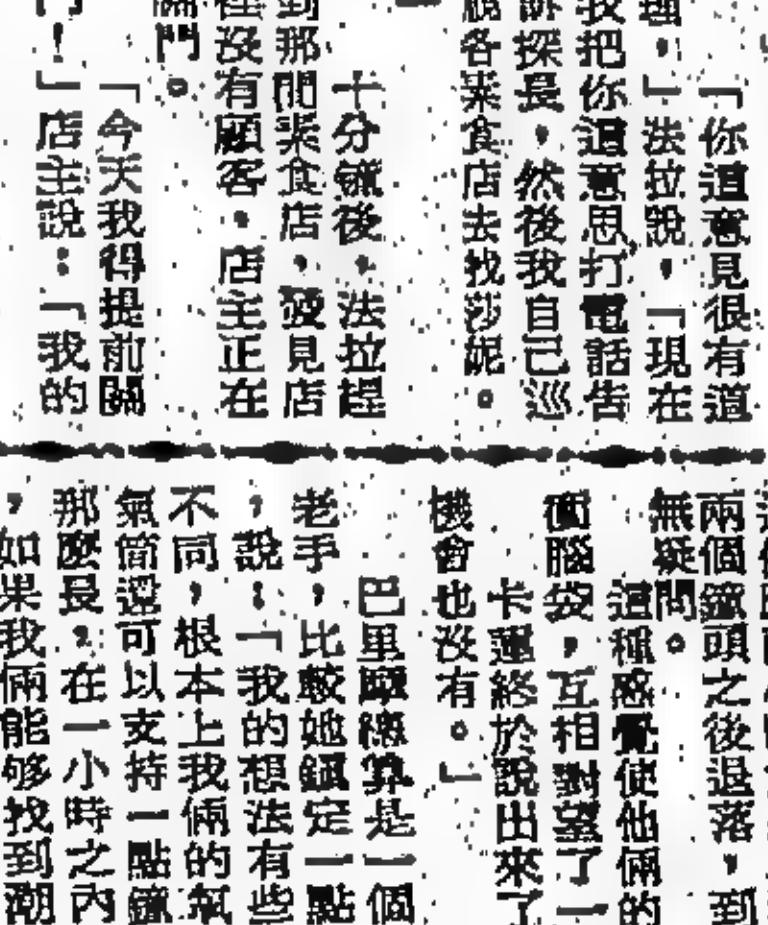 「你這意見很有道
理，」法拉說，「現在
我把你這意思打電話告
訴探長，然後我自己巡
視各素食店去找莎妮。
十分鐘後，法拉趕
到那間素食店，發見店
裡沒有顧客，店主正在
關門。
「今天我得提前關
門！」店主說：「我的
兩個鐘頭之後退落，到
無疑問。
這種感覺使他倆的
個腦袋，互相對望了一
卡蓮終於說出來了
機會也沒有。」
巴里度總算是一個
老手，比較她鎮定一點
，說：「我的想法有些
不同，根本上我倆的氧
氣筒還可以支持一點鐘
那麼長，在一小時之內
，如果我倆能够找到潮